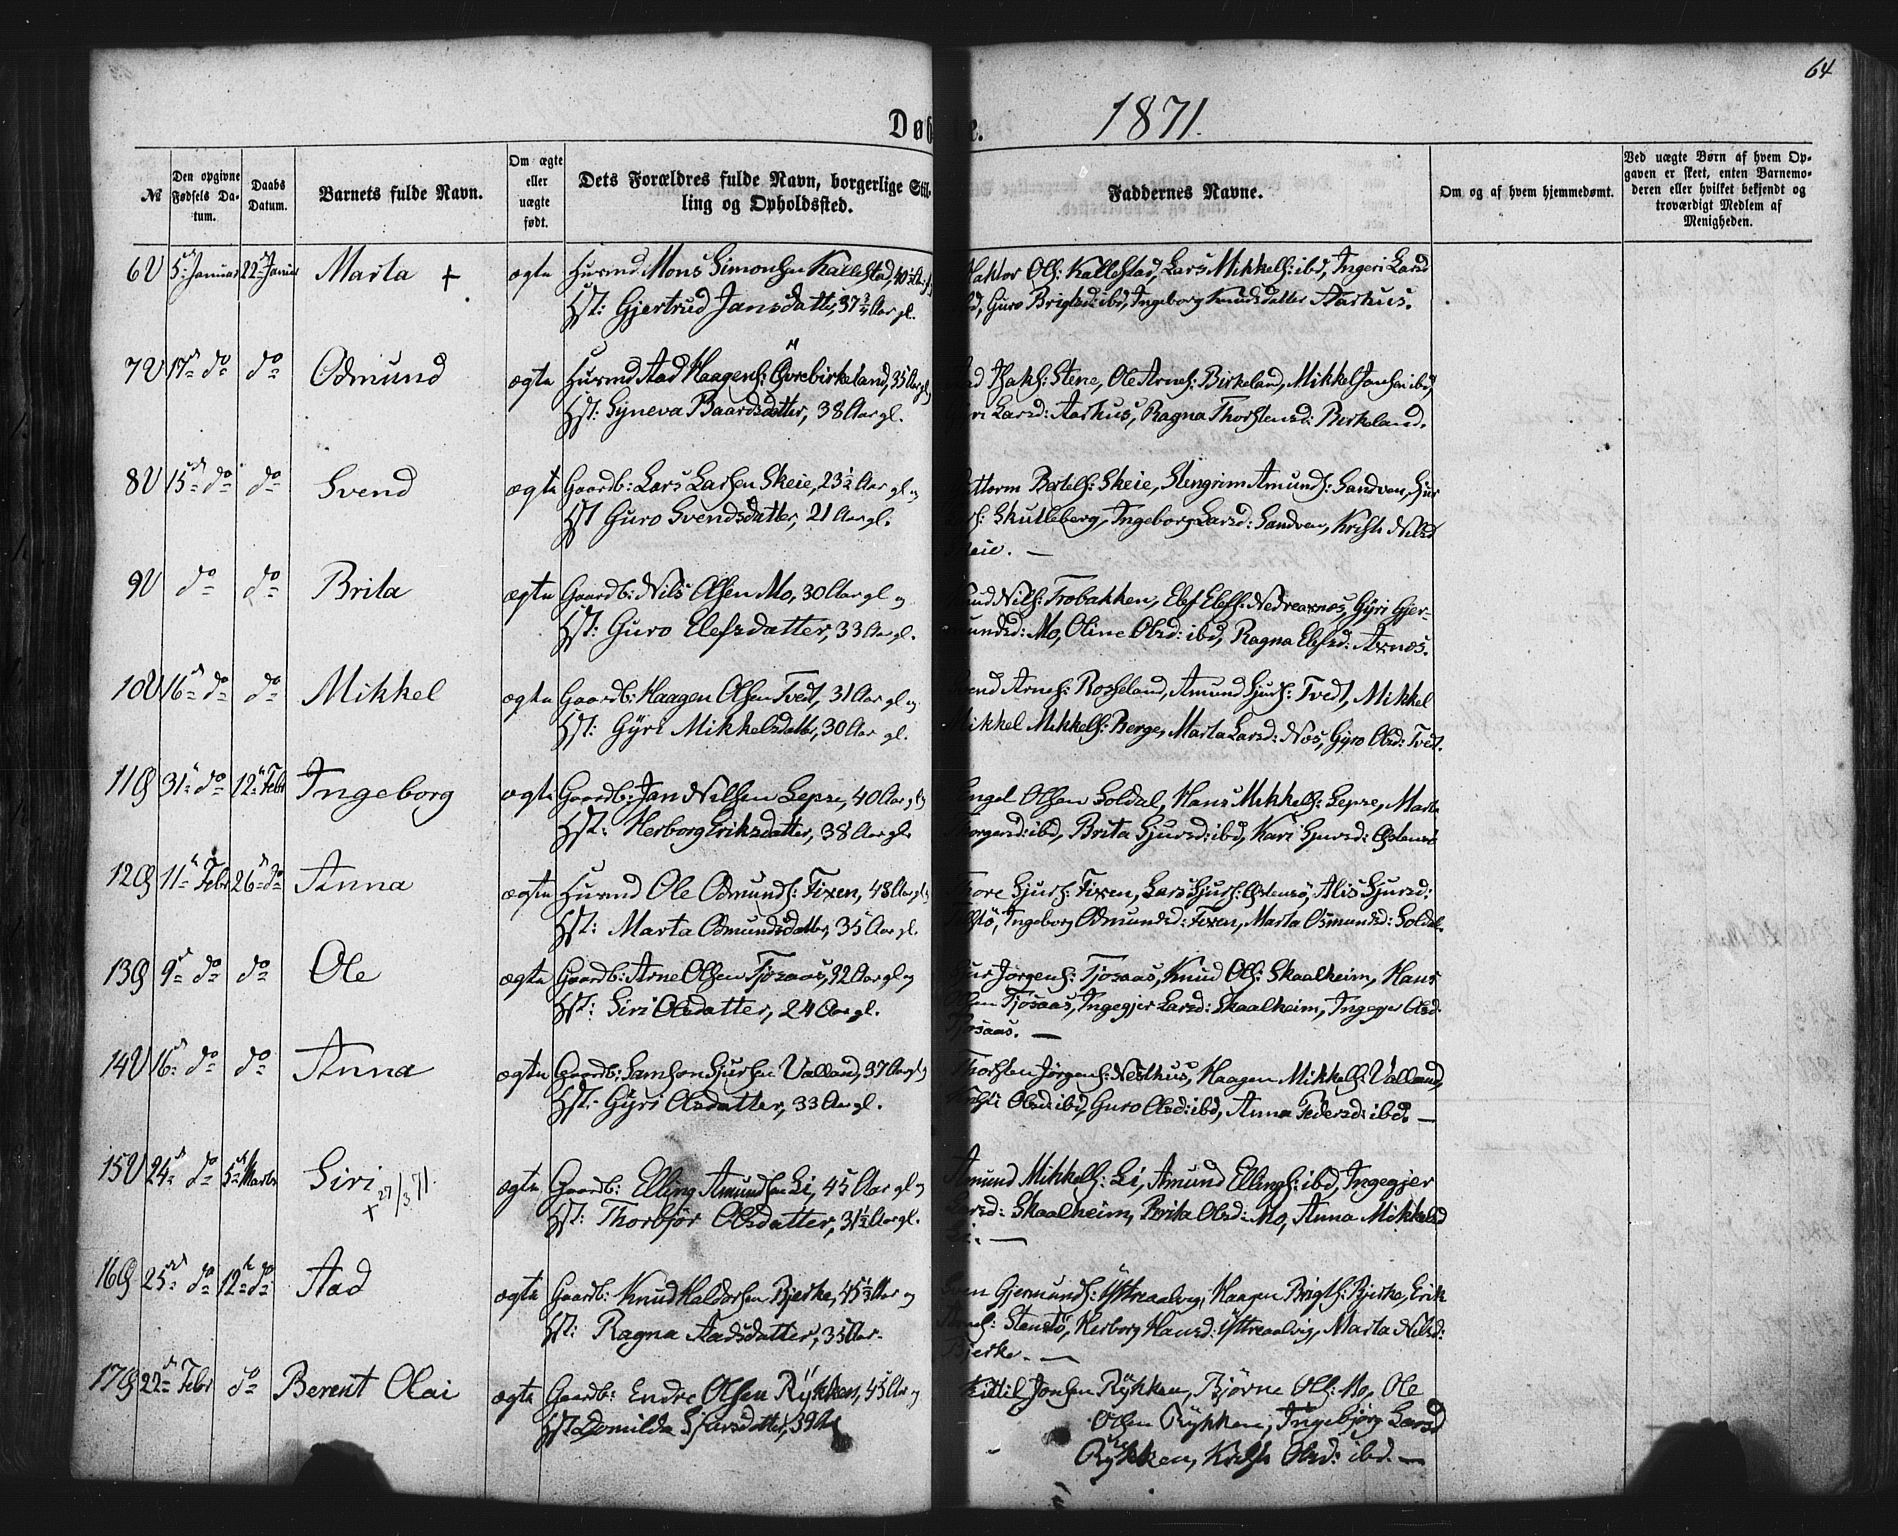 64
Døb
e.
1871.
№
Den opgivne Fødsels Da-
tum.
Daabs
Datum.
Barnets fulde Navn.
Om ægte
eller
uægte
født.
Dets Forældres fulde Navn, borgerlige Stil-
ling og Opholdssted.
Faddernes Navne.
Om og af hvem hjemmedømt.
Ved uægte Børn af hvem Op-
gaven er skeet, enten Barnemo-
deren eller hvilket bekjendt og
troværdigt Medlem af
Menigheden.
6 5 Januar 22 Januar Marta + ægte Husmd Mons Simonsen Kallestad,
Hst: Gjertrud Jansdatter, 37 Aar gl.
Ols: Kallestad, Lars Mikkels: ibd, Ingeri Larsd
Guro Brigtsd: ibd, Ingeborg Knudsdatter Aarhus.
7 17 do do Odmund ægte Husmd Aad Haagens: Øvrebirkeland, 35 Aar gl
Hst: Syneva Baardsdatter, 38 Aar gl.
Stene, Ole Arnes: Birkeland, Mikkel Jansen ibd,
Larsd: Aarhus, Ragna Thorstensd: Birkeland.
8 15 do do Svend ægte Gaardb: Lars Larsen Skeie, 23½ Aar gl og
Hst Guro Svendsdatter, 21 Aar gl.
Bertels: Skeie, Stengrim Amunds: Sandven,
Skutleberg, Ingeborg Larsd: Sandven, Nilsd
9 do do Brita ægte Gaardb: Nils Olsen Mo, 30 Aar gl og
Hst: Guro Elefsdatter, 33 Aar gl.
Nils: Trobakken, Elef Elefs: Nedreaxnes, Gyri Gjer-
mundsd: Mo, Oline Olsd: ibd, Ragna Elefsd: Axnes.
10 16 do do Mikkel ægte Gaardb: Haagen Olsen Tvedt, 31 Aar gl og
Hst: Gyri Mikkelsdatter, 30 Aar gl.
Svend Arnes: Rosseland, Amund Sjurs: Tvedt, Mikkel
Mikkel Mikkels: Berge, Marta Larsd: Nes, Gyro Olsd: Tvedt.
11 31 do 12 Febr Ingeborg ægte Gaardb: Jan Nilsen Lepse, 40 Aar gl
Hst: Herborg Eriksdatter, 38 Aar gl.
Engel Olsen Soldal, Hans Mikkels: Lepse, Marta
Torgersd: ibd, Brita Sjursd: ibd, Kari Sjursd: Østensø
12 11 Febr 26 do Anna ægte Husmd Ole Odmunds: Fixen, 48 Aar gl
Hst: Marta Odmundsdatter, 35 Aar gl.
Thore Sjurs: Fixen, Lars Sjurs: Østensø, Alis Sjursd:
Ingeborg Odmundsd: Fixen, Marta Osmundsd: Soldal.
13 9 do do Ole ægte Gaardb: Arne Olsen Tjosaas, Aar gl og
Hst: Siri Olsdatter, 24 Aar gl.
Jørgens: Tjosaas, Knud Ols: Skaalheim, Hans
Olsen Tjosaas, Ingegjer Larsd: Skaalheim, Ingegjer Olsd:
Tjosaas. —
14 16 do do Anna ægte Gaardb: Samson Sjursen Valland, 37 Aar gl
Hst: Gyri Olsdatter, 33 Aar gl.
Thorsten Jørgens: Nesthus, Haagen Mikkels: Valland,
Olsd: ibd, Guro Olsd: ibd, Anna Pedersd: ibd. —
15 24 do 5 Marts Siri + 27/3 71. ægte Gaardb: Elling Amundsen Li, 45 Aar gl og
Hst: Thorbjør Olsdatter, 31½ Aar gl.
Amund Mikkels: Li, Amund Ellings: ibd, Ingegjer
Larsd: Skaalheim, Brita Olsd: Mo, Anna Mikkelsd
Li. —
16 25 do 12 do Aad ægte Gaardb: Knud Haldorsen Bjerke, 45½ Aar og
Hst: Ragna Aadsdatter, 35 Aar.
Sven Gjermunds: Ystreaalvig, Haagen Brigts: Bjerke, Erik
Stenstø, Herborg Hansd: Ystreaalvig, Marta Nilsd:
Bjerke. —
17 22 Febr do Berent Olai ægte Gaardb: Endre Olsen Rykken, 45 Aar og
Hst Domilda Sjursdatter, 39 Aar
Kittil Jonsen Rykken, Bjørne Ols: Mo, Ole
Olsen Rykken, Ingebjørg Larsd
Rykken, Olsd: ibd. —